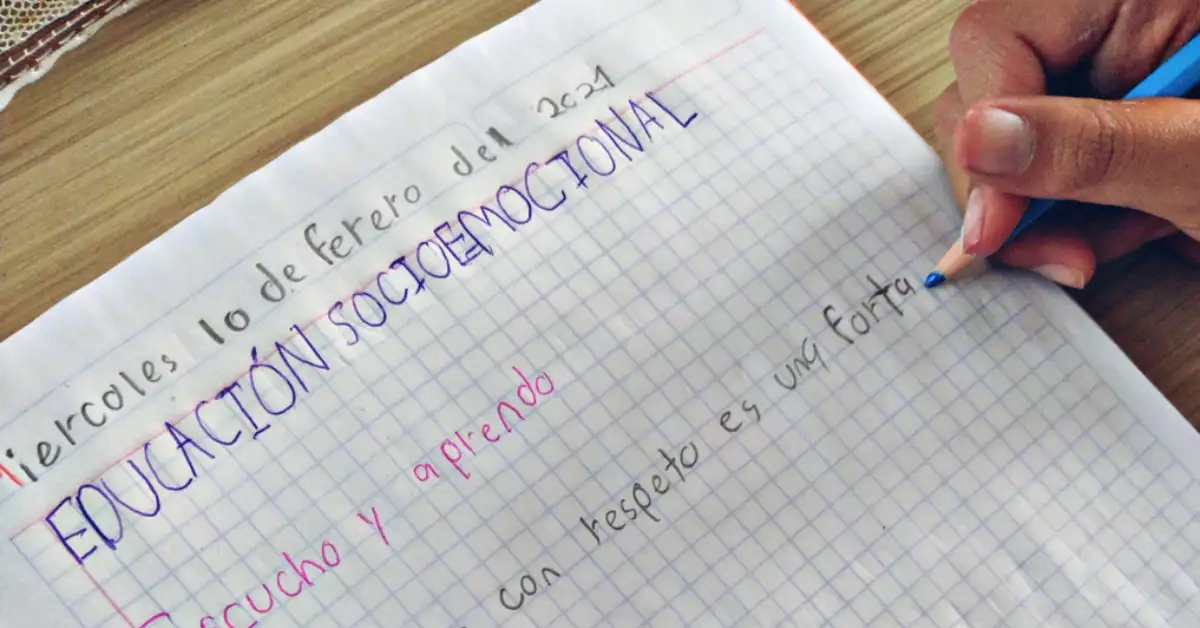 Miercoles 10 de ferero del 2021
EDUCACIÓN SOCIOEMOCIONAL
Escucho y aprendo
con respeto es una forta